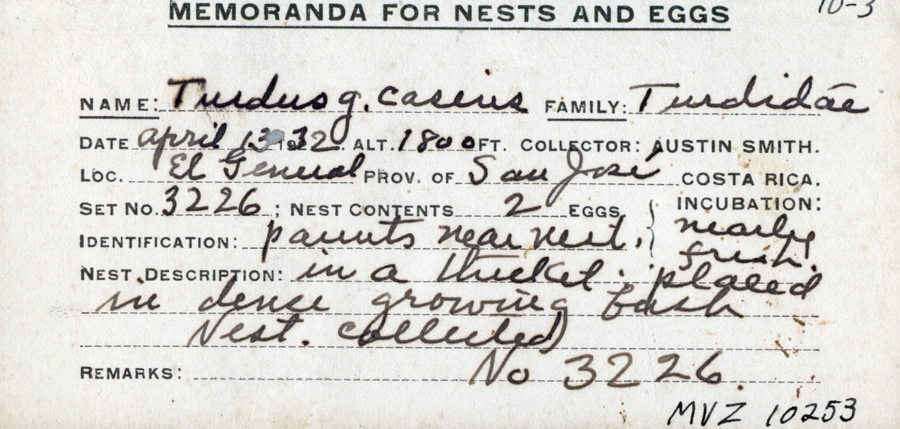 10-3
MEMORANDA FOR NESTS AND EGGS
NAME: Turdus g. casius FAMILY: Turdidae
DATE april 13 1932. ALT. 1800 FT. COLLECTOR: AUSTIN SMITH.
LOC. El General PROV. OF San José COSTA RICA.
SET NO. 3226 ; NEST CONTENTS 2 EGGS { INCUBATION:
IDENTIFICATION: parents near nest. nearly fresh.
NEST DESCRIPTION: in a thicket. placed
in dense growing bush
Nest. collected)
REMARKS: No 3226.
MVZ 10253